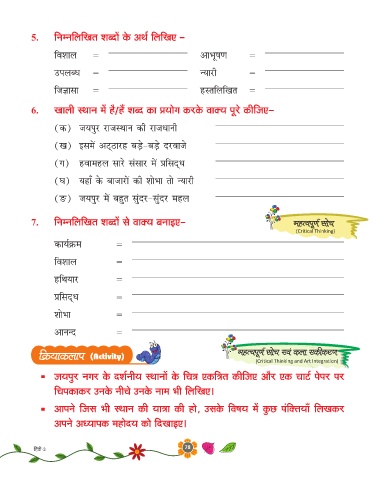 5. निम्नलिखित शब्दों के अर्थ लिखिए –
विशाल = आभूषण =
उपलब्ध = न्यारी =
जिज्ञासा = हस्तलिखित =
6. खाली स्थान में है/हैं शब्द का प्रयोग करके वाक्य पूरे कीजिए–
(क) जयपुर राजस्थान की राजधानी
(ख) इसमें अट्ठारह बड़े-बड़े दरवाजे
(ग) हवामहल सारे संसार में प्रसिद्ध
(घ) यहाँ के बाजारों की शोभा तो न्यारी
(ङ) जयपुर में बहुत सुंदर-सुंदर महल
7. निम्नलिखित शब्दों से वाक्य बनाइए–
महत्वपूर्ण सोच
(Critical Thinking)
कार्यक्रम =
विशाल =
हथियार =
प्रसिद्ध =
शोभा =
आनन्द =
क्रियाकलाप (Activity)
महत्वपूर्ण सोच एवं कला एकीकरण
(Critical Thinking and Art Integration)
• जयपुर नगर के दर्शनीय स्थानों के चित्र एकत्रित कीजिए और एक चार्ट पेपर पर
चिपकाकर उनके नीचे उनके नाम भी लिखिए।
• आपने जिस भी स्थान की यात्रा की हो, उसके विषय में कुछ पंक्तियाँ लिखकर
अपने अध्यापक महोदय को दिखाइए।
हिंदी 3
78